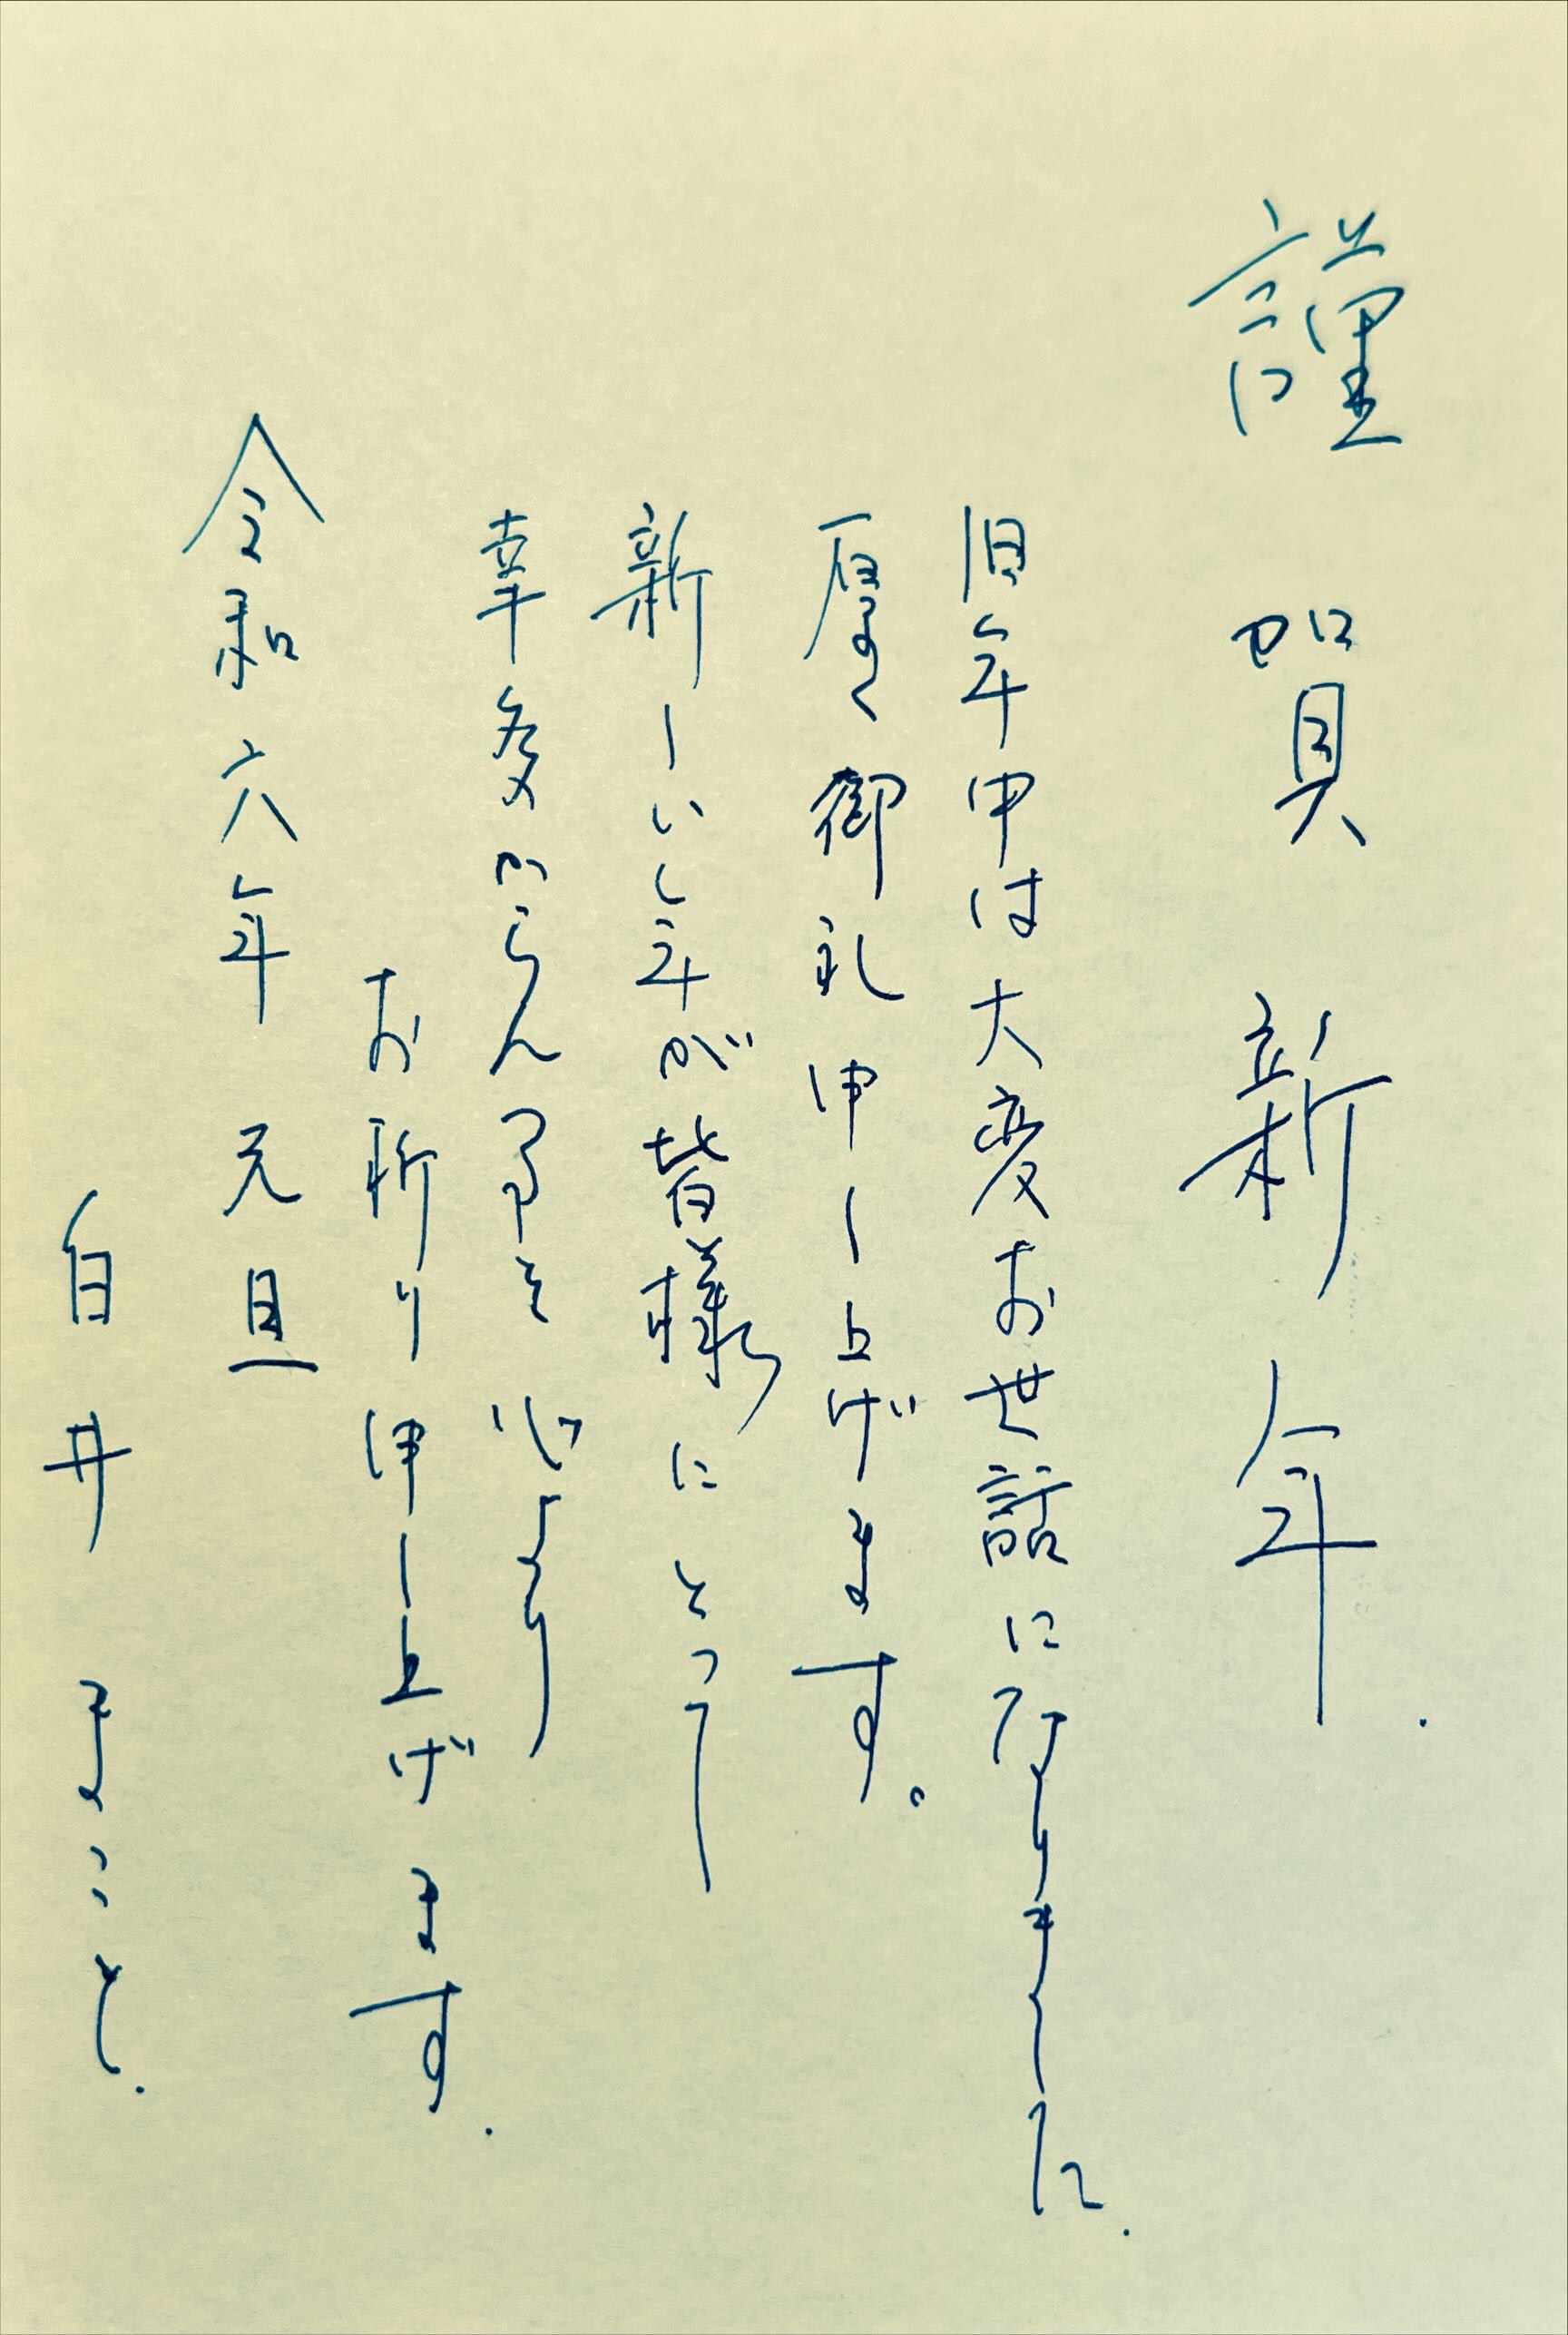 謹賀新年
旧年中は大変お世話になりました.
厚く御礼申し上げます。
新しい年が皆様にとって
幸多からん事を心より
お祈り申し上げます.
令和六年 元旦
白井 まこと.